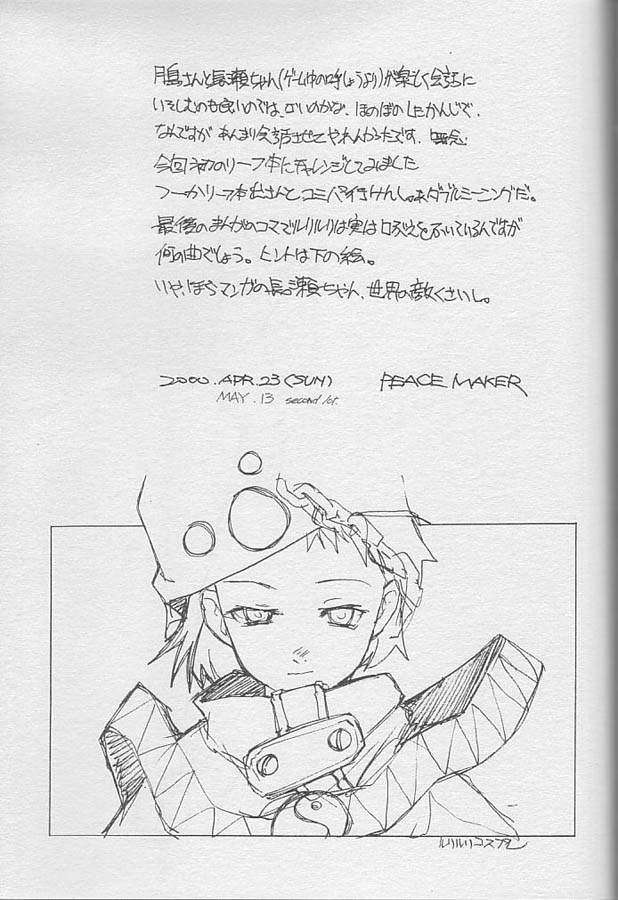 月島さんと長瀬ちゃん(ゲーム中の呼しょうより)が楽しく会話に
いそしむのも良いのでは、ないのかな、ほのぼのしたかんじで。
なんですが あんまり会話させてやれんかったです。無念
今回初のリーフ本にチャレンジしてみました
つーかリーフ本
ダブルミーニングだ。
最後のまんがのコマでルリルリは実は口ぶえをふいているんですが
何の曲でしょう。ヒントは下の絵。
いや、ほらマンガの長瀬ちゃん、世界の敵くさいし。
2000.APR.23(SUN) PEACE MAKER
MAY.13 second lot.
ルリルリコスプレ